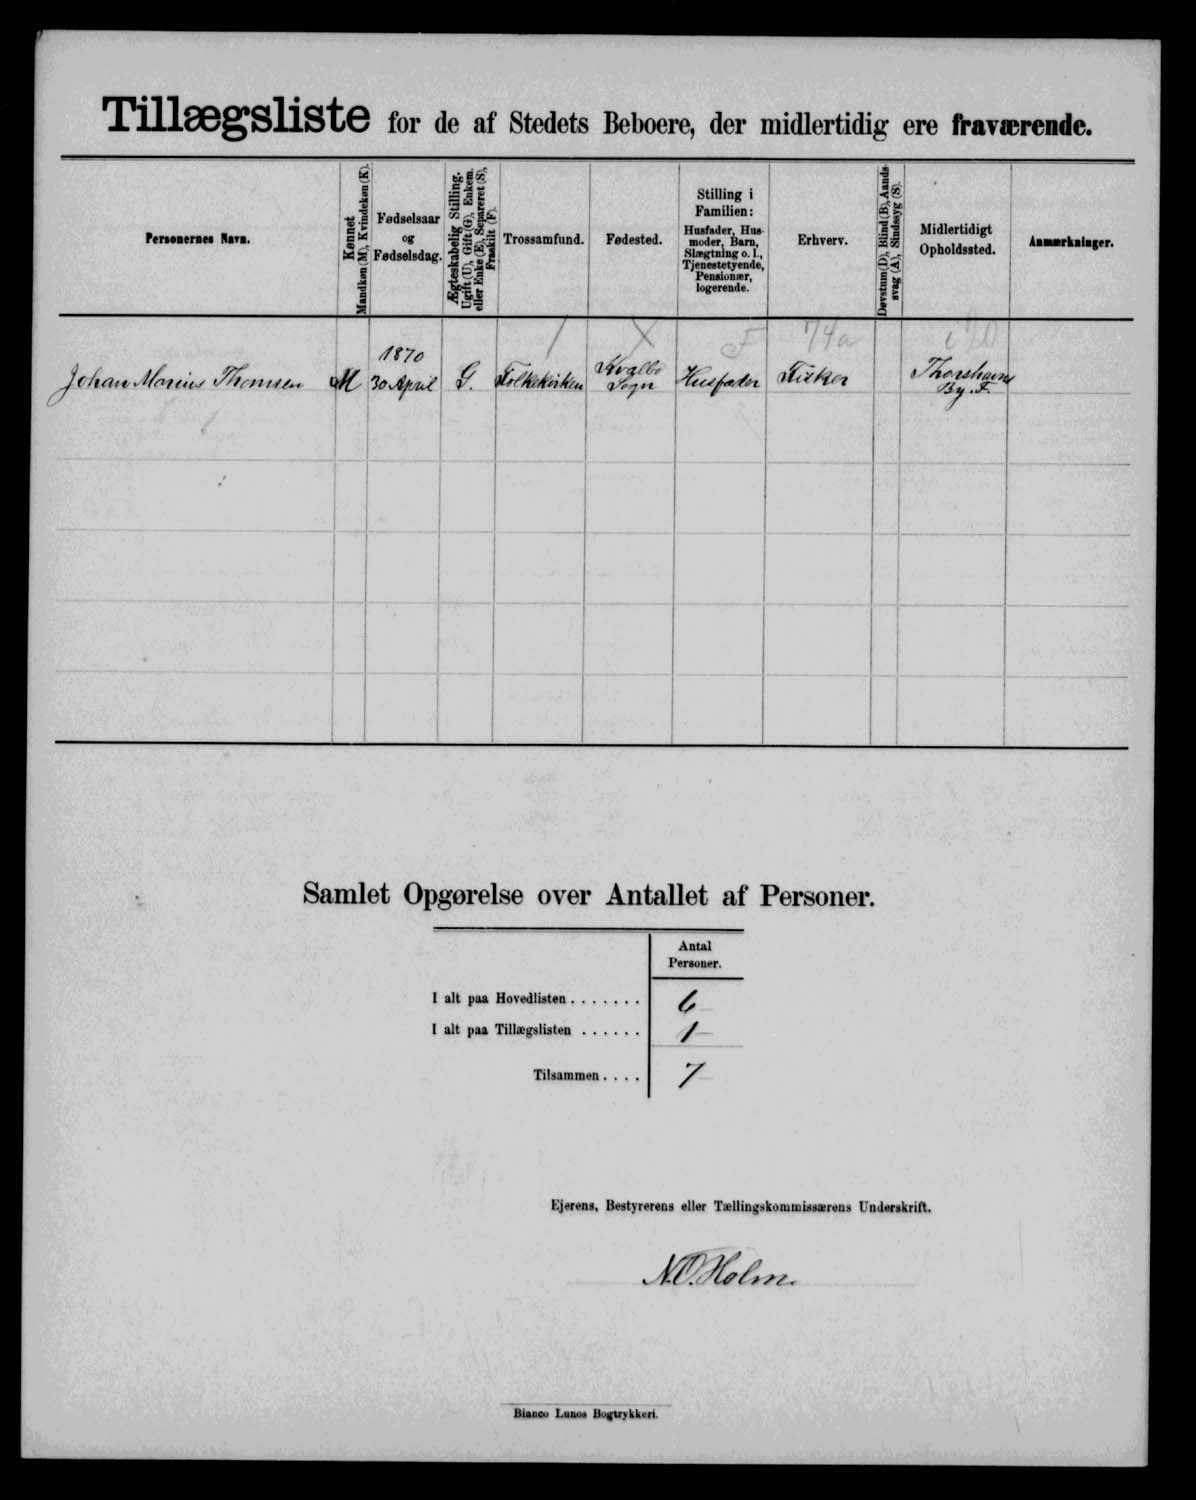 Tillægsliste for de af Stedets Beboere, der midlertidig ere fraværende.
Personernes Navn.
Kønnet
Mandkøn (M), Kvindekøn (K).
Fødselsaar
og
Fødselsdag.
Ægteskabelig Stilling.
Ugift (U), Gift (G), Enkem.
eller Enke (E), Separeret (S),
Fraskilt (F).
Trossamfund.
Fødested.
Stilling i
Familien:
Husfader, Hus-
moder, Barn,
Slægtning o. l.,
Tjenestetyende,
Pensionær,
logerende.
Erhverv.
Døvstum (D), Blind (B), Aands-
svag (A), Sindssyg (S).
Midlertidigt
Opholdssted.
Anmærkninger.
/ X F 74a i 20
Johan Marius Thomsen M 1870
30 April G. Folkekirken Kvalbø
Sogn Husfader Fisker Thorshavn
By. F.
Samlet Opgørelse over Antallet af Personer.
Antal
Personer.
I alt paa Hovedlisten . . . . . . . 6
I alt paa Tillægslisten . . . . . . 1
Tilsammen . . . . 7
Ejerens, Bestyrerens eller Tællingskommissærens Underskrift.
N.O. Holm.
Bianco Lunos Bogtrykkeri.